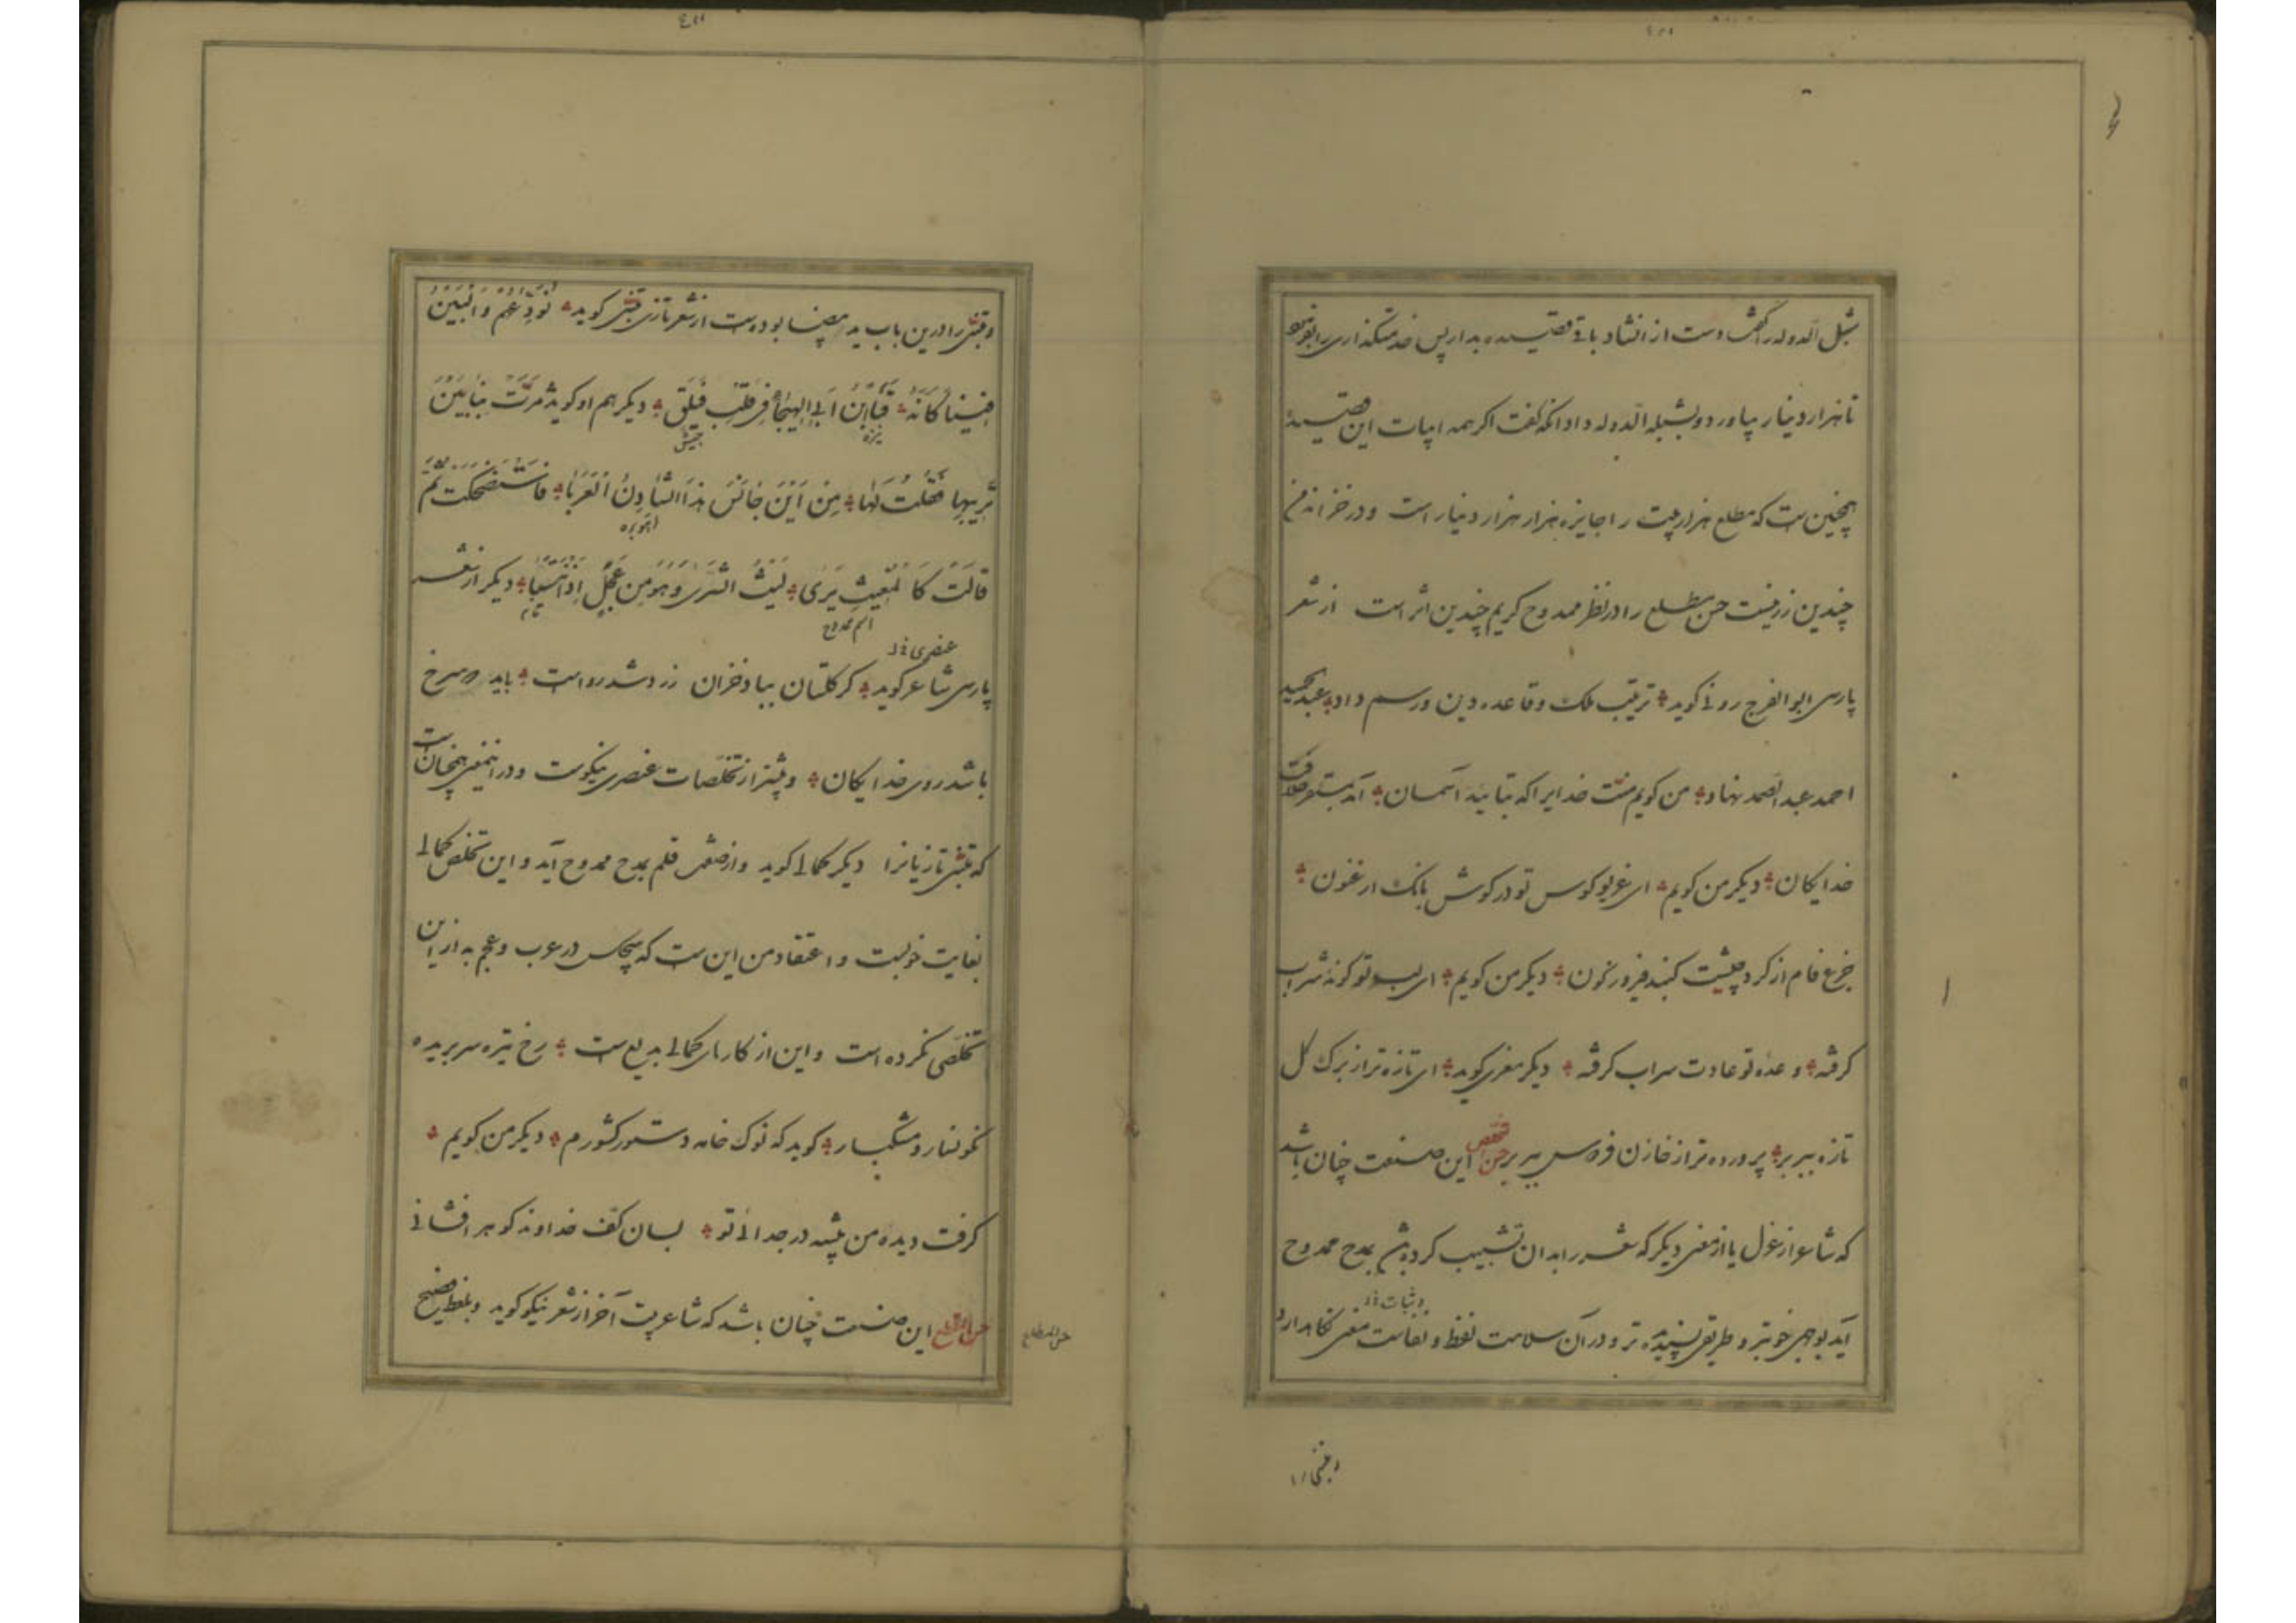 شبل الدوله را گفت دست از انشاد باقی قصیده بدار پس خدمتکذاری را بفرمود
تا هزار دینار بیاورد و بشبل الدوله داد انکه گفت اکر همه ابیات این قصیده
همچنین ست که مطلع هر بیت را جایزه هزار هزار دینار است و در خزانه من
چندین زر نیست حسن مطلع را در نظر ممدوح کریم چندین اثر است از شعر
پارسی ابو الفرج رونی کوید ترتیب ملک و قاعده دین و رسم داد عبد الحمید
احمد عبد الصمد نهاد من کویم منت خدایرا که بتایید آسمان آمد بمستقر خلافت
خدایکان دیکر من کویم ای غریو کوس تو در کوش بانک ارغنون
جزع فام از کرد جیشت کنبد فیروزه کون دیکر من کویم ای لب تو کونه شراب
کرفته وعده تو عادت سراب کرفته دیکر معزی کوید ای تازه تر از برک کل
تازه ببر بر پرورده تر از خازن فردوس ببر بر حسن تخلص این صنعت چنان باشد
که شاعر از غزل یا از معنی دیکر که شعر را بدان تشبیب کرده باشد بمدح ممدوح
آید بوجهی خوبتر و طریقی پسندیده تر و در آن سلامت لفظ و نفاست معنی نکاه دارد
و متنبی را
و متنبی را درین باب ید بیضا بوده ست از شعر تازی متنبی کوید نودعهم و البین
فینا کانه قنا ابن ابی الهیجاء فی قلب فیلق دیکر هم او کوید مرت بنا بین
نیزه جیش
تربیها فقلت لها من این جانس هذا الشادن العربا فاستضحکت ثم
آهو بره
قالت کالمغیث یری لیث الشری و هو من عجل اذا انتسبا دیکر از شعر
اسم ممدوح
پارسی شاعر کوید کر کلستان بباد خزان زرد شد رواست باید که سرخ
باشد روی خدایکان و بیشتر از تخلصات عنصری نیکوست و در این معنی همچنان است
که متنبی تازیانرا دیکر کمالی کوید و از صفت قلم بمدح ممدوح آید و این تخلص کمالی
بغایت خوبست و اعتقاد من این ست که هیچکس در عرب و عجم به از این
تخلصی نکرده است و این از کارهای کمالی بدیع ست رخ تیره سر بریده
نکونسار و مشکبار کوید که نوک خامه دستور کشورم دیکر من کویم
کرفت دیده من پیشه در جدائی تو بسان کف خداوند کوهر افشانی
حسن المقطع این صنعت چنان باشد که شاعر بیت آخر از شعر نیکو کوید و بلفظ فصیح
حسن المقطع